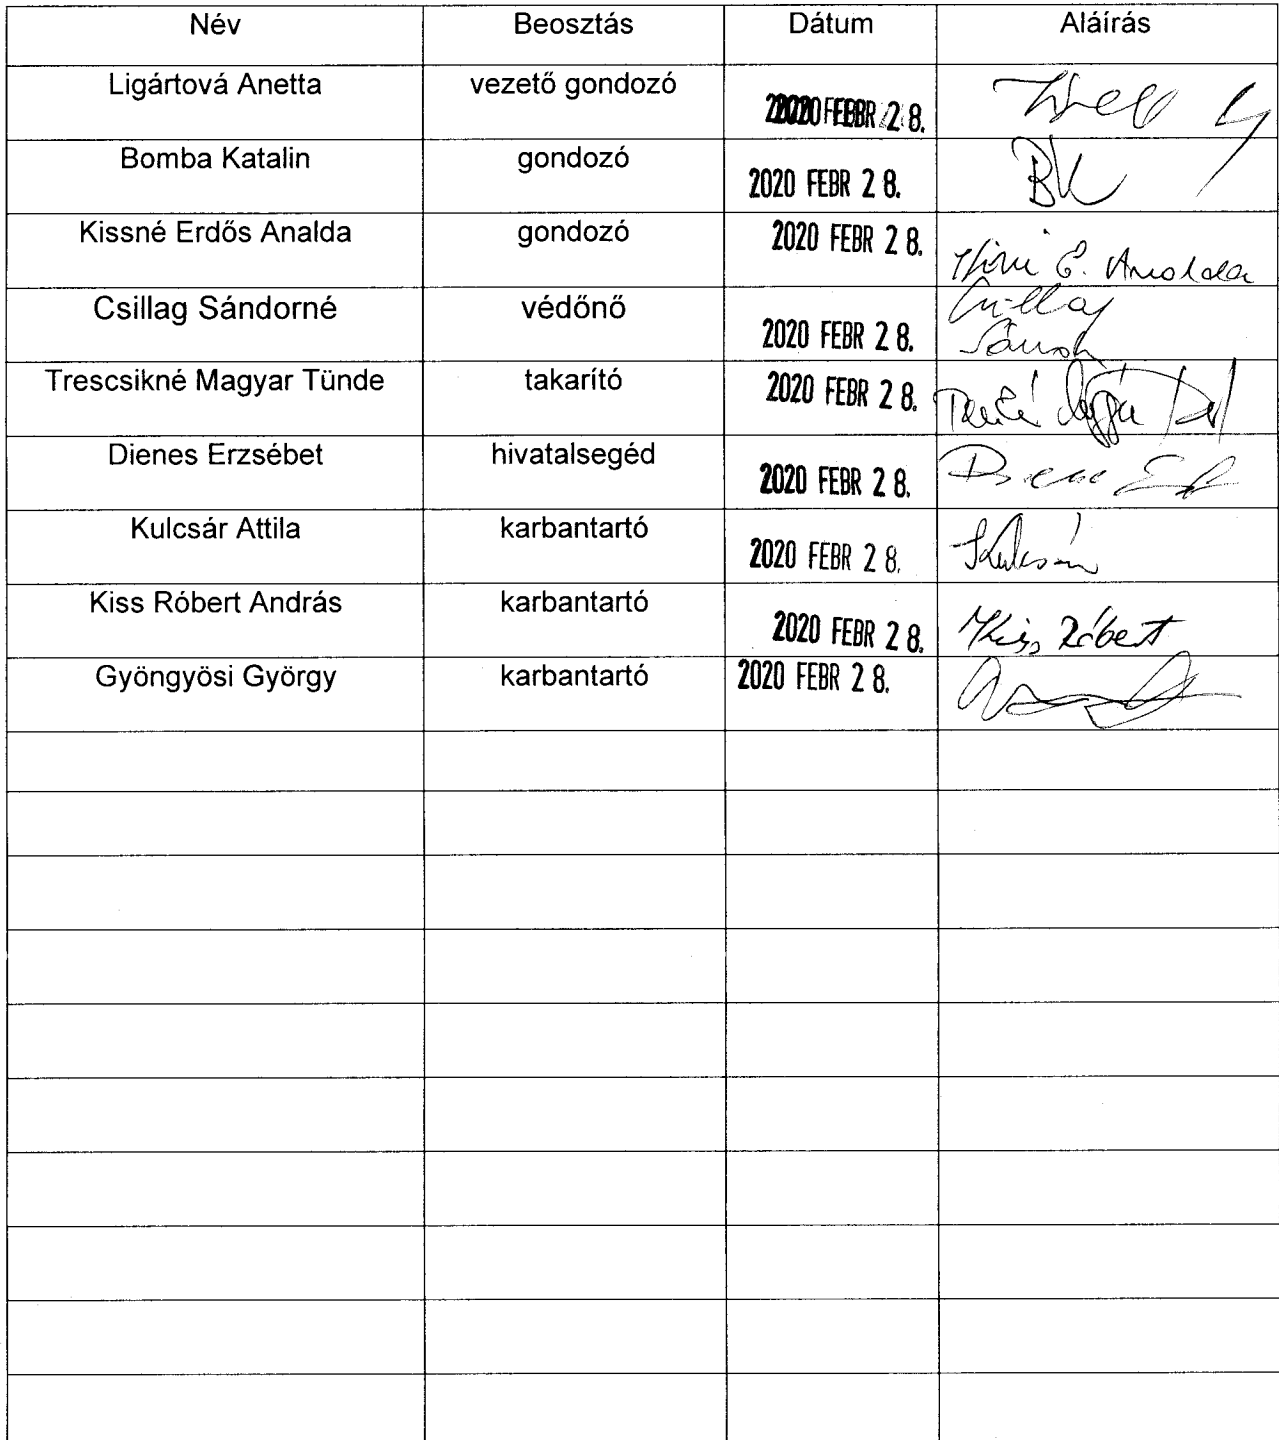 Név Beosztás Dátum Aláírás
Ligártová Anetta vezető gondozó 2020 FEBR 28.
Bomba Katalin gondozó 2020 FEBR 28. BK
Kissné Erdős Analda gondozó 2020 FEBR 28.
Csillag Sándorné védőnő 2020 FEBR 28.
Trescsikné Magyar Tünde takarító 2020 FEBR 28.
Dienes Erzsébet hivatalsegéd 2020 FEBR 28.
Kulcsár Attila karbantartó 2020 FEBR 28.
Kiss Róbert András karbantartó 2020 FEBR 28. Kiss Róbert
Gyöngyösi György karbantartó 2020 FEBR 28.